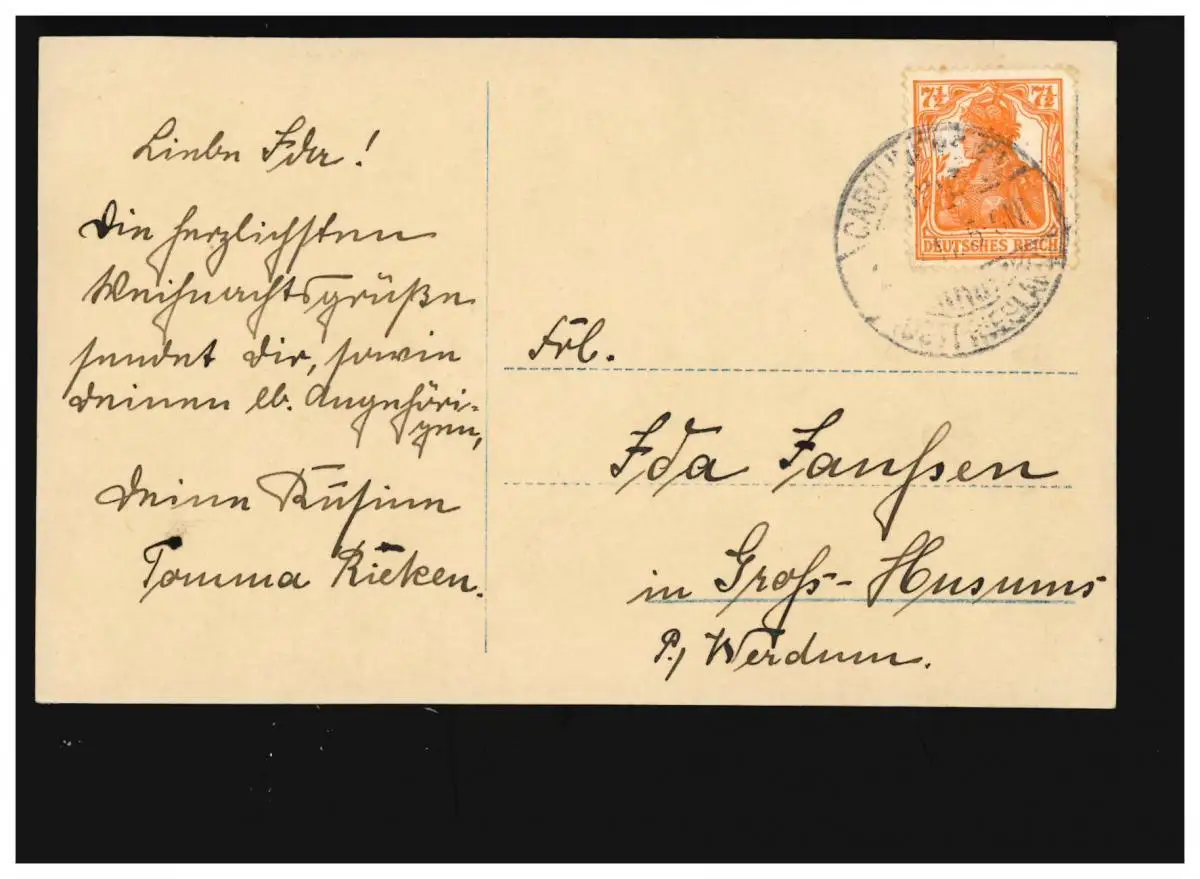 Liebe Ida!
Die herzlichsten
Weihnachtsgrüße
sendet Dir, sowie
deinen lb. Angehöri-
gen,
Deine Kusine
Tomma Rieken.
7½ 7½
DEUTSCHES REICH
Frl.
Ida Janßen
in Groß-Husums
P./ Werdum.